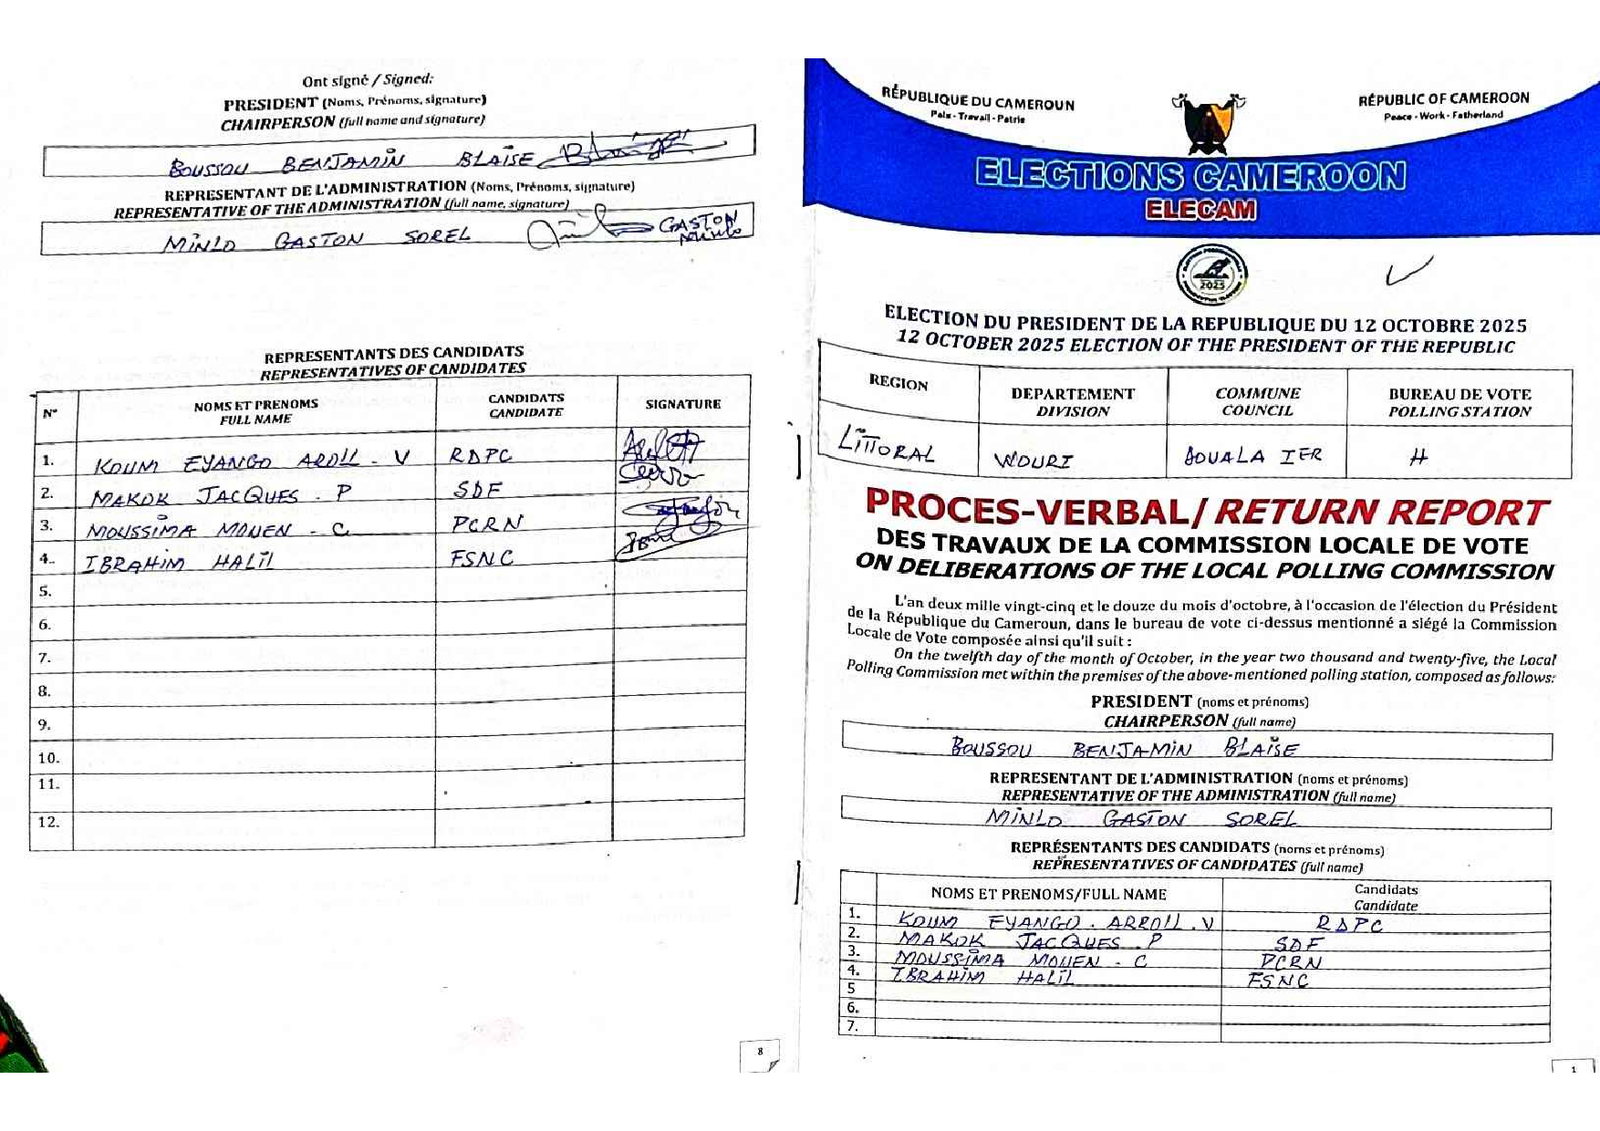 Ont signé / Signed:
PRESIDENT (Noms, Prénoms, signature)
CHAIRPERSON (full name and signature)
BOUSSOU BENJAMIN BLAISE
REPRESENTANT DE L'ADMINISTRATION (Noms, Prénoms, signature)
REPRESENTATIVE OF THE ADMINISTRATION (full name, signature)
MINLO GASTON SOREL GASTON
REPRESENTANTS DES CANDIDATS
REPRESENTATIVES OF CANDIDATES
N° NOMS ET PRENOMS CANDIDATS SIGNATURE
FULL NAME CANDIDATE
1. KOUM EYANGO AROLL . V RDPC
2. MAKOK JACQUES . P SDF
3. MOUSSIMA MOUEN - C PCRN
4. IBRAHIM HALIL FSNC
5.
6.
7.
8.
9.
10.
11.
12.
8
RÉPUBLIQUE DU CAMEROUN
Paix - Travail - Patrie
RÉPUBLIC OF CAMEROON
Peace - Work - Fatherland
ELECTIONS CAMEROON
ELECAM
2025
ELECTION DU PRESIDENT DE LA REPUBLIQUE DU 12 OCTOBRE 2025
12 OCTOBER 2025 ELECTION OF THE PRESIDENT OF THE REPUBLIC
REGION DEPARTEMENT COMMUNE BUREAU DE VOTE
DIVISION COUNCIL POLLING STATION
LITTORAL WOURI DOUALA IER H
PROCES-VERBAL/ RETURN REPORT
DES TRAVAUX DE LA COMMISSION LOCALE DE VOTE
ON DELIBERATIONS OF THE LOCAL POLLING COMMISSION
L'an deux mille vingt-cinq et le douze du mois d'octobre, à l'occasion de l'élection du Président
de la République du Cameroun, dans le bureau de vote ci-dessus mentionné a siégé la Commission
Locale de Vote composée ainsi qu'il suit :
On the twelfth day of the month of October, in the year two thousand and twenty-five, the Local
Polling Commission met within the premises of the above-mentioned polling station, composed as follows:
PRESIDENT (noms et prénoms)
CHAIRPERSON (full name)
BOUSSOU BENJAMIN BLAISE
REPRESENTANT DE L'ADMINISTRATION (noms et prénoms)
REPRESENTATIVE OF THE ADMINISTRATION (full name)
MINLO GASTON SOREL
REPRÉSENTANTS DES CANDIDATS (noms et prénoms)
REPRESENTATIVES OF CANDIDATES (full name)
NOMS ET PRENOMS/FULL NAME Candidats
Candidate
1. KOUM EYANGO . ARROLL . V RDPC
2. MAKOK JACQUES . P SDF
3. MOUSSIMA MOUEN - C PCRN
4. IBRAHIM HALIL FSNC
5
6.
7.
1